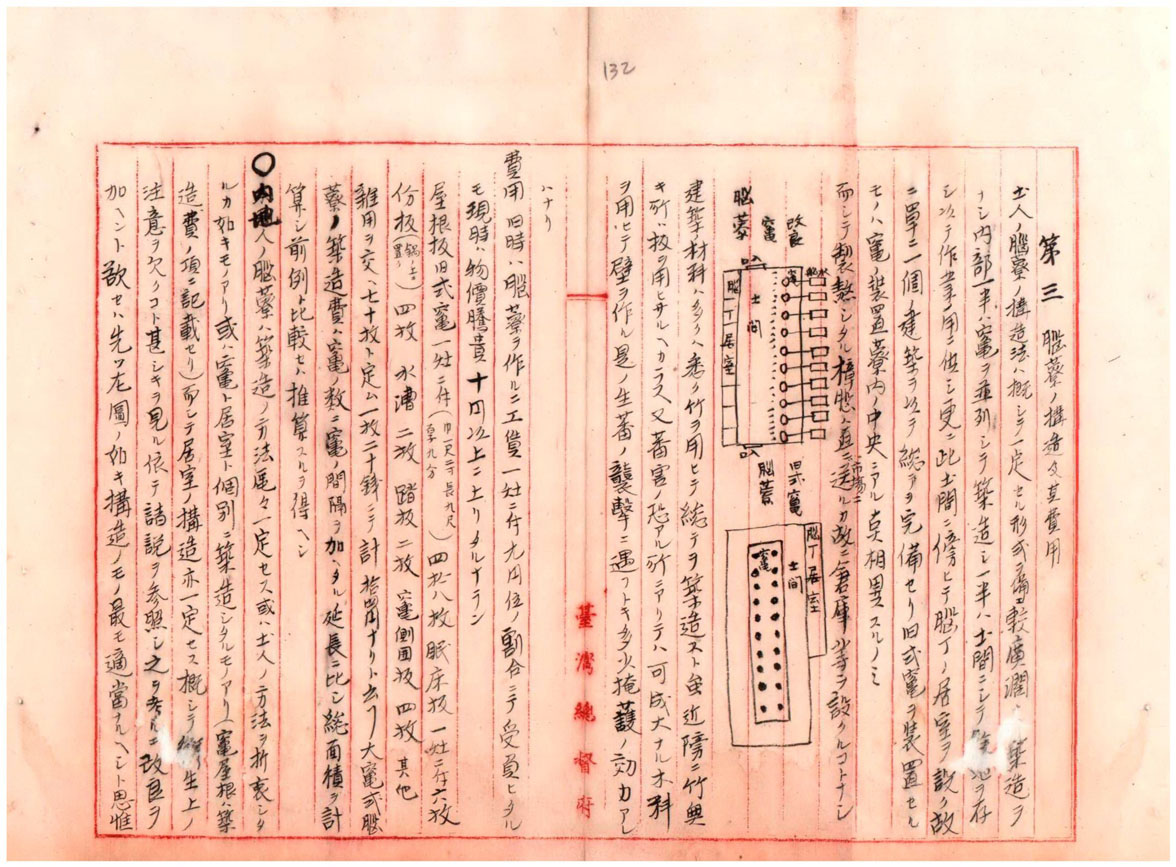 132
第三 腦藔ノ構造及其費用
土人ノ腦寮ノ構造法ハ概シテ一定セル形式ヲ備ヘ較廣濶ノ築造ヲ
ナシ内部一半ハ竈ヲ並列シテ築造シ一半ハ土間ニシテ餘地ヲ存
シ以テ作業ノ用ニ供シ更ニ此土間ニ傍ヒテ腦丁ノ居室ヲ設ク故
ニ單ニ一個ノ建築ヲ以テ総テヲ完備セリ旧式竈ヲ装置セル
モノハ竈ノ装置藔内ノ中央ニアル点相異スルノミ
而シテ製熬シタル樟腦ハ直ニ市場ニ送ルカ故ニ倉庫等ヲ設クルコトナシ
改良
竈
腦藔
入口
土間
腦丁居室
竈
入口
旧式竈
腦藔
腦丁居室
土間
竈
建築ノ材料ハ多ク悉ク竹ヲ用ヒテ総テヲ築造スト虽近隣ニ竹無
キ所ハ板ヲ用ヒサルヘカラス又蕃害ノ恐アル所ニアリテハ可成大ナル木料
ヲ用ヒテ壁ヲ作ル是ノ生蕃ノ襲撃ニ遇フトキ多少掩護ノ効力アレ
臺灣總督府
ハナリ
費用 旧時ハ腦藔ヲ作ルニ工賃一灶ニ付九円位ノ割合ニテ受負ヒタル
モ現時ハ物價騰貴十円以上ニ上リタルナラン
屋根板旧式竈一灶ニ付(巾一尺二寸長九尺厚九分)四拾八枚眠床板一灶ニ付六枚
份板(鍋ノ上ニ置ク)四枚 水漕二枚 踏板二枚 竈側囲板四枚 其他
雜用ヲ交ヘ七十枚ト定ム一枚二十銭ニテ計拾四円ナリト云フ大竈式腦
藔ノ築造費ハ竈ノ数ニ竈ノ間隔ヲ加ヘタル延長ニ比シ総面積ヲ計
算シ前例ト比較セハ推算スルヲ得ヘシ
○内地人ノ腦藔ハ築造ノ方法區々一定セス或ハ土人ノ方法ヲ折衷シタ
ルカ如キモノアリ或ハ竈ト居室ト個別ニ築造シタルモノアリ(竈屋根ハ築
造費ノ項ニ記載セリ)而シテ居室ノ構造亦一定セス概シテ衛生上ノ
注意ヲ欠クコト甚シキヲ見ル依テ諸説ヲ参照シ之ヲ考ルニ改良ヲ
加ヘント欲セハ先ツ左圖ノ如キ構造ノモノ最モ適當ナルヘシト思惟